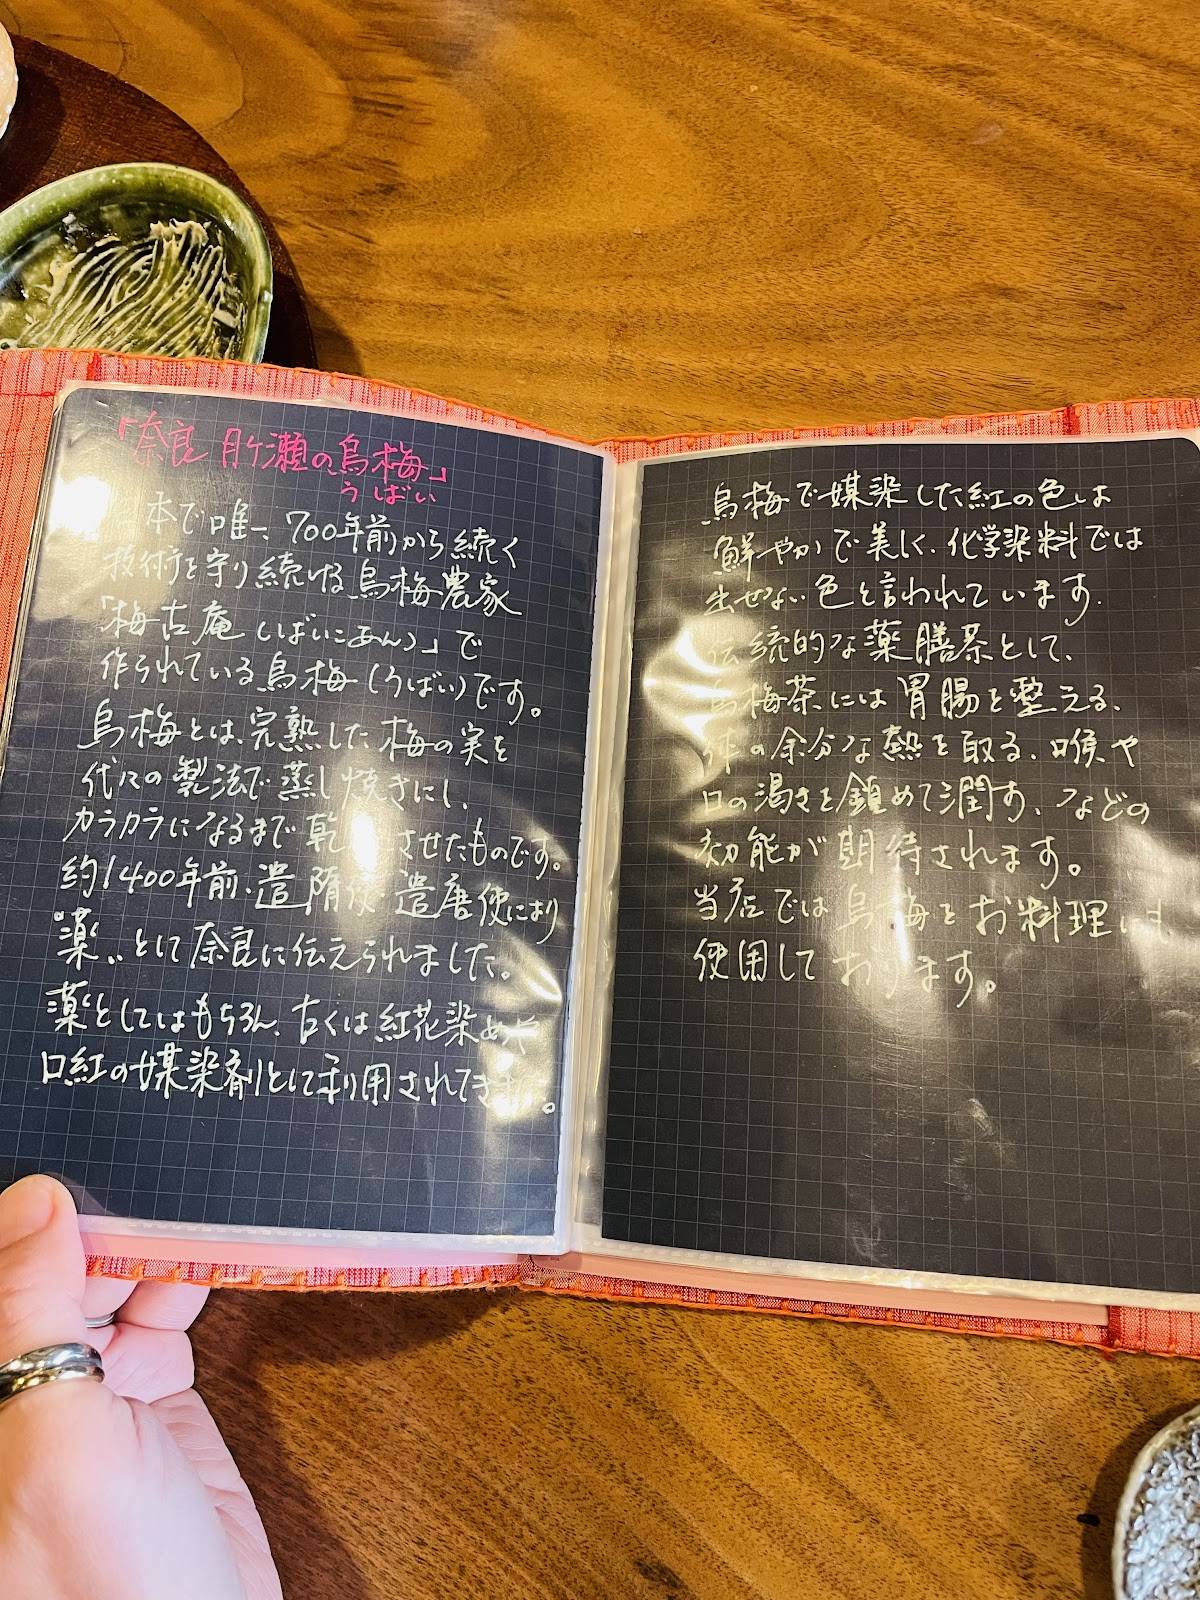 「奈良 月ケ瀬の烏梅」
うばい
本で唯一、700年前から続く
技術を守り続ける烏梅農家
「梅古庵(ばいこあん)」で
作られている烏梅(うばい)です。
烏梅とは、完熟した梅の実を
代々の製法で蒸し焼きにし、
カラカラになるまで乾 させたものです。
約1400年前、遣隋使・遣唐使により
"薬"として奈良に伝えられました。
薬としてはもちろん、古くは紅花染めや
口紅の媒染剤として利用されてき
烏梅で媒染した紅の色は
鮮やかで美しく、化学染料では
出せない色と言われています.
伝統的な薬膳茶として、
烏梅茶には胃腸を整える、
体の余分な熱を取る、喉や
口の渇きを鎮めて潤す、などの
効能が期待されます。
当店では烏梅をお料理に
使用しております。